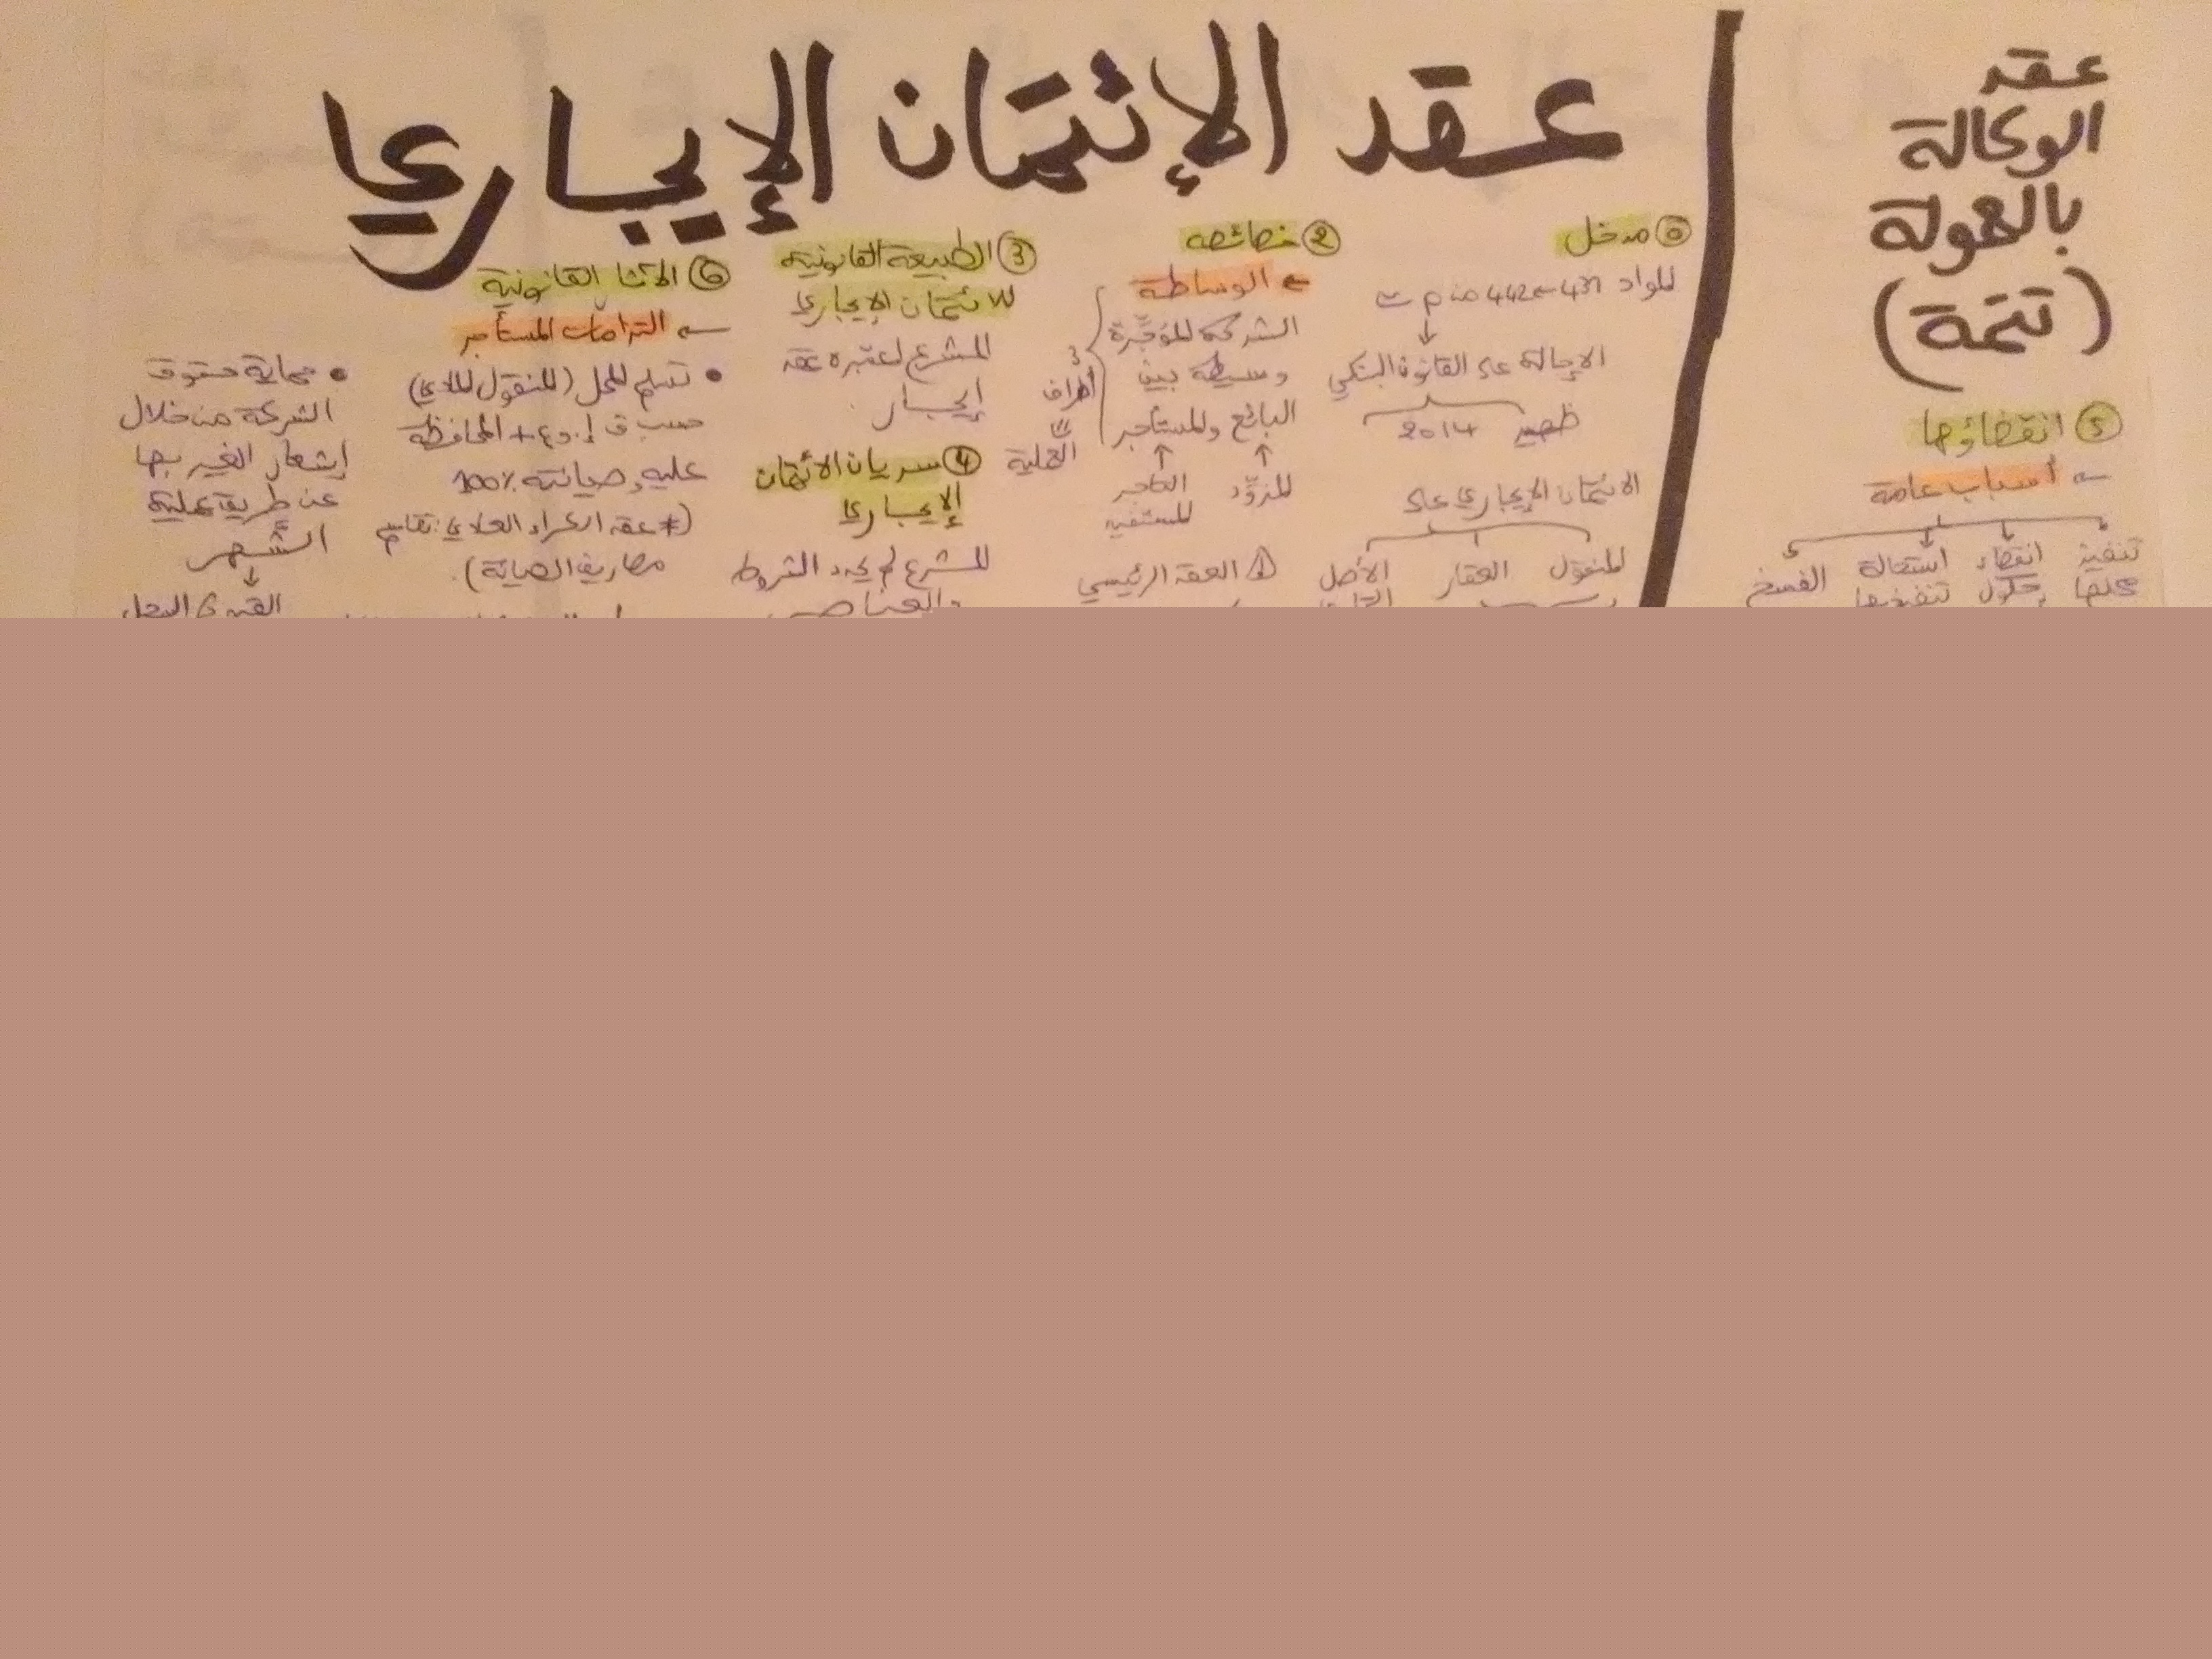 عقد
الوكالة
بالعمولة
(تتمة)
⑤ انقضاؤها
← أسباب عامة
تنفيذ انقضاء استحالة الفسخ
محلها حلول تنفيذها
عقد الإئتمان الإيجاري
⓪ مدخل
المواد 431 ← 442 من م ت
↓
الإحالة على القانون البنكي
ظهير 2014
الائتمان الإيجاري على
المنقول العقار الأصل
② خصائصه
← الوساطة
الشركة المؤجِّرة
وسيطة بين
البائع والمستأجر
↑ ↑
المزوِّد التاجر
المستفيد
3
أطراف
العملية
① العقد الرئيسي
③ الطبيعة القانونية
للائتمان الإيجاري
المشرع اعتبره عقد
إيجار.
④ سريان الائتمان
الإيجاري
المشرع لم يحدد الشروط
والعناصر
⑥ الآثار القانونية
← التزامات المستأجر
• تسلم المحل (المنقول المادي)
حسب ق.ا.و.ع + المحافظة
عليه وصيانته 100%
(≠ عقد الكراء العادي: تقاسم
مصاريف الصيانة).
• حماية حقوق
الشركة من خلال
إشعار الغير بها
عن طريق عملية
الشَّهر
↓